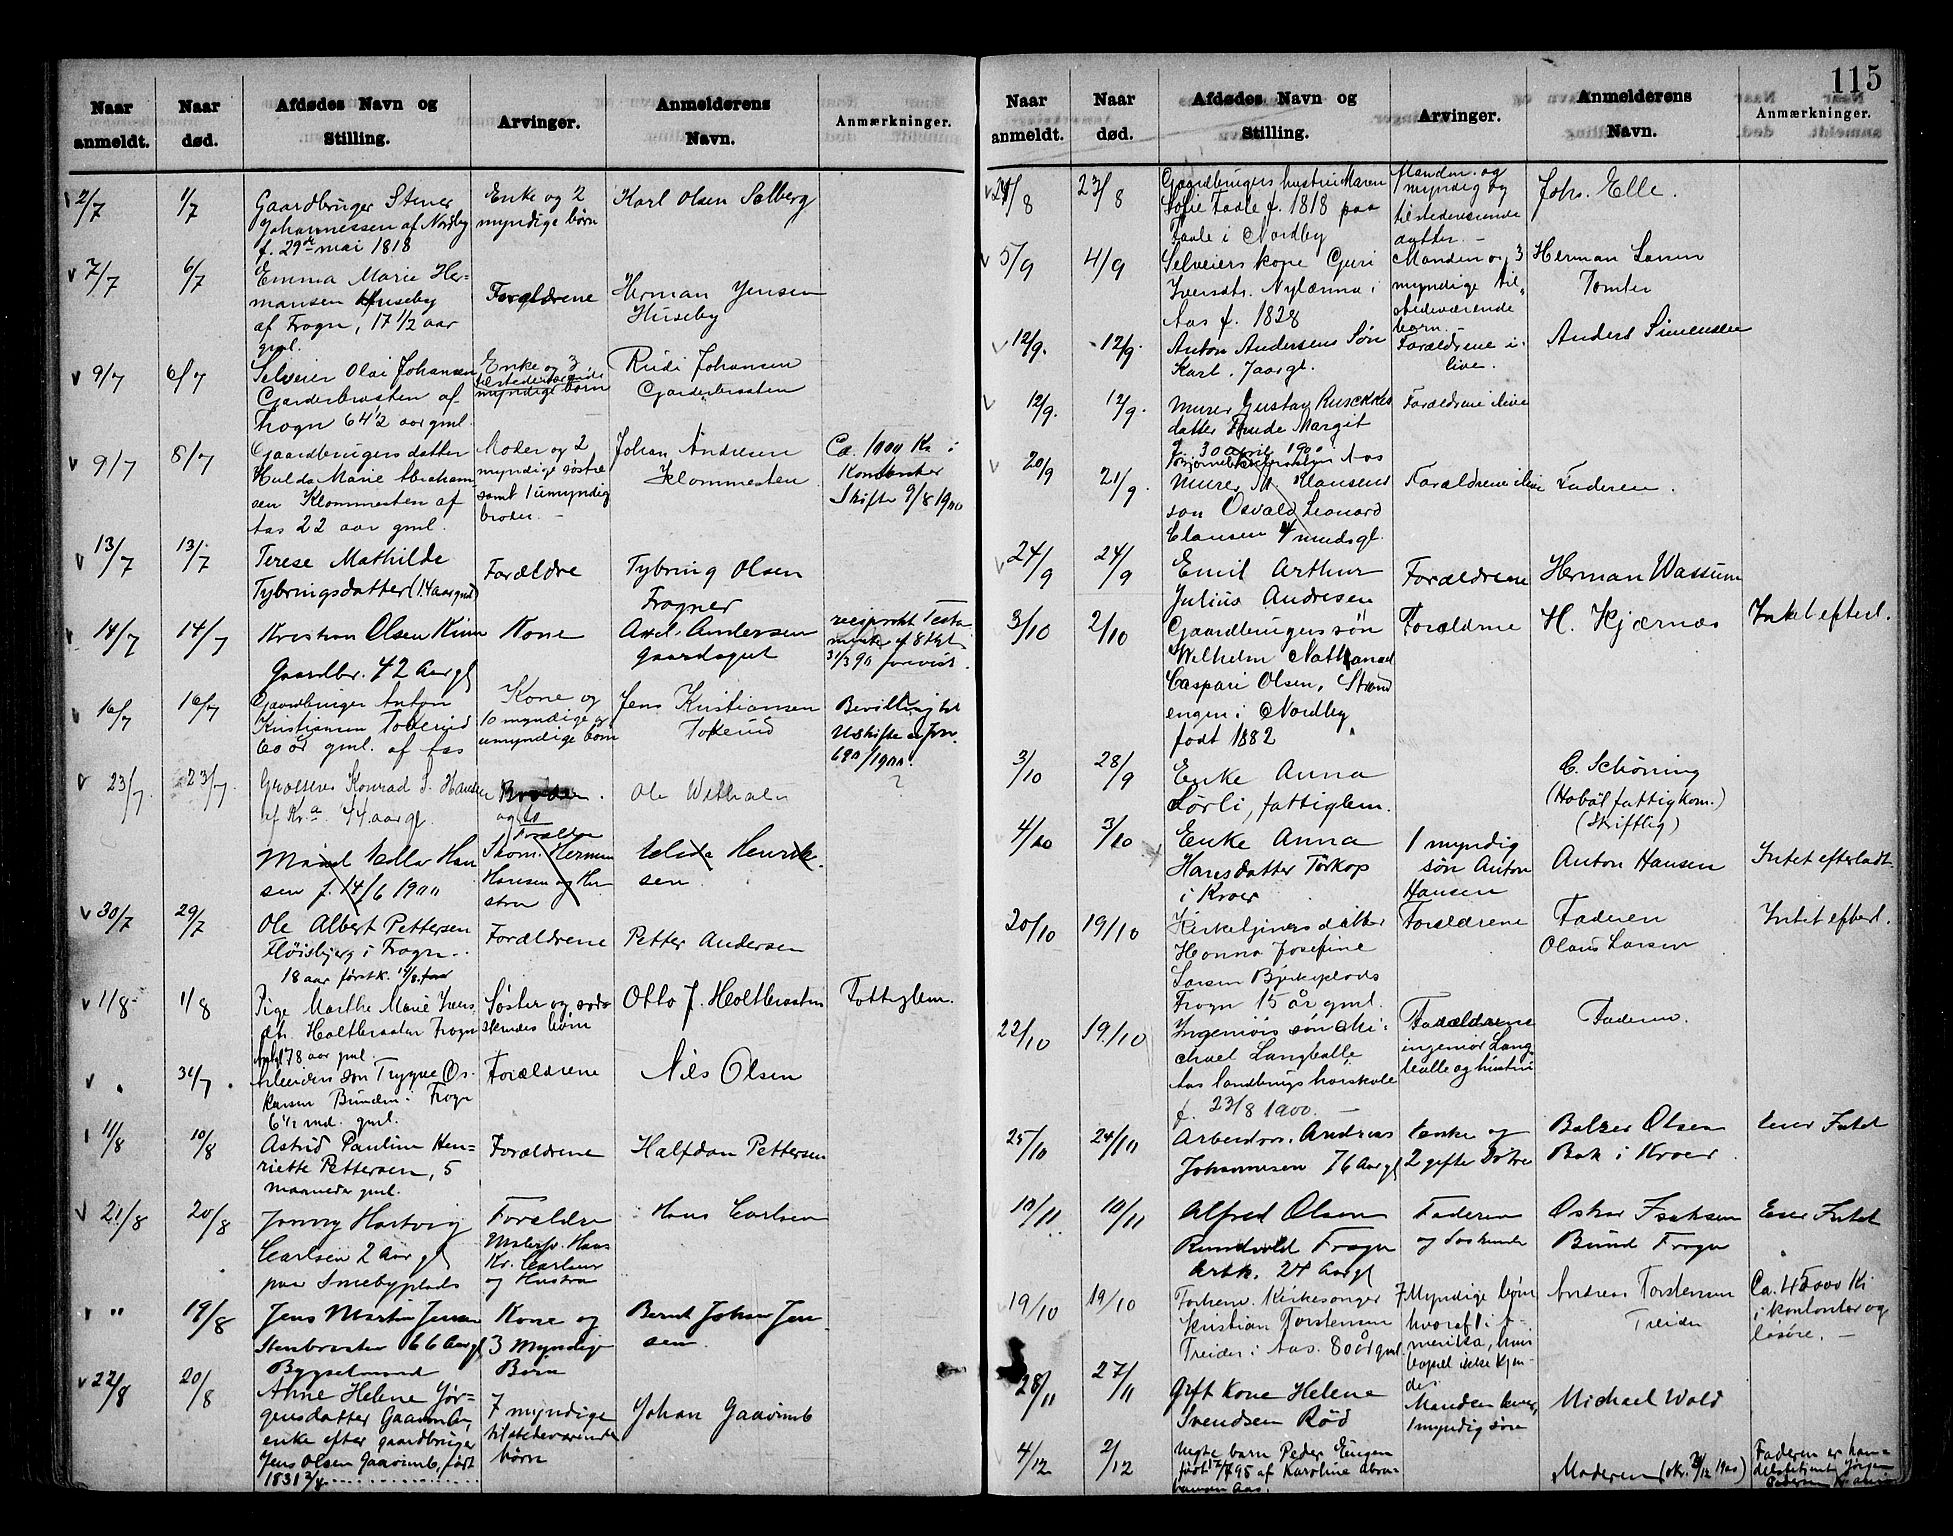 115
Naar anmeldt. Naar død. Afdødes Navn og Stilling. Arvinger. Anmelderens Navn. Anmærkninger.
2/7 1/7 Gaardbruger Stener Enke og 2 Karl Olsen Solberg
Johannessen af Nordby myndige børn
f. 29de mai 1818
7/7 6/7 Emma Marie Her- Forældrene Herman Jensen
mansen Huseby Huseby
af Frogn, 17 1/2 aar
gml.
9/7 6/7 Selveier Olai Johansen Enke og 3 Rudi Johansen
Garderbraaten af myndige børn Garderbraaten
Frogn 64 1/2 aar gml.
9/7 8/7 Gaardbrugers datter Moder og 2 Johan Andresen Ca. 1000 Kr i
Hulda Marie Abraham- myndige søstre Klommesten Kontanter
sen Klommesten af samt 1 umyndig Skifte 9/8 1900
Aas 22 aar gml. broder. -
13/7 13/7 Terese Mathilde Forældre Tybring Olsen
Tybringsdatter (14 aar gml) Frogner
14/7 14/7 Kristian Olsen Kone Axel Andersen
Gaardbr. 42 Aar gl 31/3 90 forevist.
16/7 16/7 Gaardbruger Anton Kone og Jens Kristiansen Bevilling til
Kristiansen 10 myndige og Uskifte
60 år gml. af Aas umyndige børn 690/1900.
23/7. 23/7. Konrad S. Hansen Ole ?
af Kr.a 44 aar gl. og
Hansen Herman Henrik-
sen f. 14/6 1900 Hansen og Hu- sen.
stru
30/7 29/7 Ole Albert Pettersen Forældrene Petter Andersen
Fløisbjerg i Frogn.
18 aar
1/8 1/8 Pige Marthe Marie Søster og Otto J. Holtbraaten Fattiglem.
dt. Holtbraaten Frogn børn
78 aar gml.
" 31/7. søn Trygve Os- Forældrene Nils Olsen
karsen i Frogn
6 1/2 md. gml.
11/8 10/8 Astrid Pauline Hen- Forældrene Halfdan Pettersen
riette Pettersen, 5
maaneder gml.
21/8 20/8 Jonny Hartvig Forældre Hans Carlsen
Carlsen 2 Aar gl Hans
paa Smebyplads Kr. Carlsen
og Hustru
" 19/8 Jens Martin Jensen Kone og Bernt Johan Jen-
Stenbraaten 66 Aar gl 3 Myndige sen.
Bygselmand Børn
22/8 20/8 Anne Helene Jør- 7 myndige Johan Gaavimb
gensdatter tilstedeværende
enke efter gaardbruger børn
Jens Olsen Gaavimb, født
1831
Naar anmeldt. Naar død. Afdødes Navn og Stilling. Arvinger. Anmelderens Navn. Anmærkninger.
24/8 23/8 Gaardbrugers hustru Maren Manden og Johs. Elle.
Sofie Taale f. 1818 paa myndig og
Taale i Nordby tilstedeværende
datter. -
5/9 4/9 Selveiers kone Guri Manden og 3 Herman Larsen
Iversdtr. i myndige til- Tomter
Aas f. 1828 stedeværende
børn.
12/9. 12/9. Anton Andersens Søn Forældrene i Anders Simensen
Karl. 7 aar gl. live.
12/9. 12/9. Murer Gustav Forældrene ilive
datter Margit
f. 30 april 1900
Aas
20/9 21/9. Murer Klausens Forældrene ilive Faderen.
søn Osvald Leonard
Clausen 4 mnds gl.
24/9 24/9 Emil Arthur Forældrene Herman Wassum
Julius Andresen
3/10 2/10 Gaardbrugers søn Forældrene H. Kjærnes Intet efterl.
Wilhelm Nathanael
Caspari Olsen, Strand
engen i Nordby
født 1882
3/10 28/9 Enke Anna C. Schöning
Lørli, fattiglem. (Hobøl fattigkom.)
(Skriftlig)
4/10 3/10 Enke Anna 1 myndig Anton Hansen Intet efterladt
Hansdatter Tørkop søn Anton
i Kroer Hansen
20/10 19/10 Kirketjeners datter Forældrene Faderen Intet efterl.
Hanna Josefine Olaus Larsen
Larsen Bjerkeplads
Frogn 15 år gml.
22/10 19/10 Ingeniørs søn Mi- Forældrene Faderen.
chael Langballe ingeniør Lang-
Aas landbrugshøiskole balle og hustru
f. 23/8 1900. -
25/10 24/10 Arbeidsm. Andreas Enke og Balzer Olsen Eier Intet
Johannesen 76 Aar gl 2 gifte Døtre Bak i Kroer.
10/11 10/11 Alfred Olsen Faderen Oskar Isaksen Eier Intet
Frogn og Søskende Bund Frogn
Arbk. 24 Aar gl
19/10 19/10 Forhenv. Kirkesanger 7 Myndige børn Andreas Torstensen Ca. 45000 Kr
Kristian Torstensen hvoraf 1 i A- Treider i kontanter og
Treider i Aas. 80 år gml. merika, hvis løsøre. -
bopæl ikke kjen-
des.
28/11 27/11 Gift Kone Helene Manden lever, Michael Wold
Svendsen Rød 1 myndig søn
4/12 2/12 Uegte barn Peder Eugen Moderen Faderen er han-
født 95 af Karoline Abra- Jørgen
hamsen Aas. Pedersen